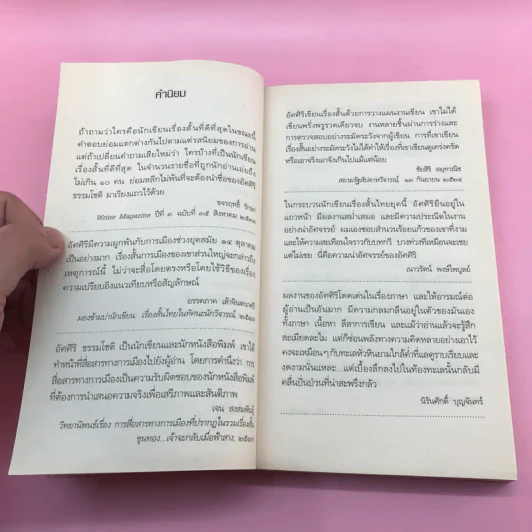 คำนิยม
ถ้าถามว่าใครคือนักเขียนเรื่องสั้นที่ดีที่สุดในขณะนี้
คำตอบย่อมแตกต่างกันไปตามแต่รสนิยมของการอ่าน
แต่ถ้าเปลี่ยนคำถามเสียใหม่ว่า ใครบ้างที่เป็นนักเขียน
เรื่องสั้นที่ดีที่สุด ในจำนวนรายชื่อที่ถูกนักอ่านเอ่ยถึง
ไม่เกิน ๑๐ คน ย่อมหลีกไม่พ้นที่จะต้องนำชื่อของอัศศิริ
ธรรมโชติ มาเรียงแถวไว้ด้วย
ขจรฤทธิ์ รักษา
Writer Magazine ปีที่ ๓ ฉบับที่ ๓๕ สิงหาคม ๒๕๓๘
อัศศิริมีความผูกพันกับการเมืองช่วงยุคสมัย ๑๔ ตุลาคม
เป็นอย่างมาก เรื่องสั้นการเมืองของเขาส่วนใหญ่จะกล่าวถึง
เหตุการณ์นี้ ไม่ว่าจะสื่อโดยตรงหรือโดยใช้วิธีของเรื่อง
ความเปรียบอิงแนวเทียบหรือสัญลักษณ์
อรรคภาค เล้าจินตนาศรี
มองข้ามบ่านักเขียน: เรื่องสั้นไทยในทัศนะนักวิจารณ์,
อัศศิริ ธรรมโชติ เป็นนักเขียนและนักหนังสือพิมพ์ เขาได้
ทำหน้าที่สื่อสารทางการเมืองไปยังผู้อ่าน โดยการคำนึงว่า การ
สื่อสารทางการเมืองเป็นความรับผิดชอบของนักหนังสือพิมพ์
ที่ต้องการนำเสนอความจริงเพื่อเสรีภาพและสันติภาพ
เจน สงสมพันธุ์
วิทยานิพนธ์เรื่อง การสื่อสารทางการเมืองที่ปรากฏในรวมเรื่องสั้น
ขุนทอง...เจ้าจะกลับเมื่อฟ้าสาง,
อัศศิริเขียนเรื่องสั้นด้วยการวางแผนงานเขียน เขาไม่ได้
เขียนพรั่งพรูรวดเดียวจบ งานหลายชิ้นผ่านการร่างและ
การตรวจสอบอย่างระมัดระวังจากผู้เขียน การที่เขาเขียน
เรื่องสั้นอย่างระมัดระวังไม่ได้ทำให้เรื่องที่เขาเขียนดูเคร่งครัด
หรือเอาจริงเอาจังเกินไปแม้แต่น้อย
ชัยสิริ สมุทวณิช
สยามรัฐสัปดาหวิจารณ์,
ในกระบวนนักเขียนเรื่องสั้นไทยยุคนี้ อัศศิริยืนอยู่ใน
แถวหน้า มีผลงานสม่ำเสมอ และมีความประณีตในงาน
อย่างน่าอัศจรรย์ ผมเองชอบสำนวนเรียบแก้วของเขาที่งาม
และให้ความสะเทือนใจราวกับบทกวี บางห่วงที่เหมือนจะเชย
แต่ไม่เชย นี่คือความน่าอัศจรรย์ของอัศศิริ
เนาวรัตน์ พงษ์ไพบูลย์
ผลงานของอัศศิริโดดเด่นในเรื่องภาษา และให้อารมณ์ต่อ
ผู้อ่านเป็นอันมาก มีความกลมกลืนอยู่ในตัวของมันเอง
ทั้งภาษา เนื้อหา ลีลาการเขียน และแม้ว่าอ่านแล้วจะรู้สึก
ละเมียดละไม แต่ก็ซ่อนพลังทางความคิดหลายอย่างเอาไว้
คงจะเหมือนๆ กับทะเลหัวหินยามใกล้ค่ำที่แลดูราบเรียบและ
งดงามนั่นแหละ...แต่เบื้องลึกลงไปในท้องทะเลนั้นกลับมี
คลื่นปั่นป่วนที่น่าสะพรึงกลัว
นิรันศักดิ์ บุญจันทร์